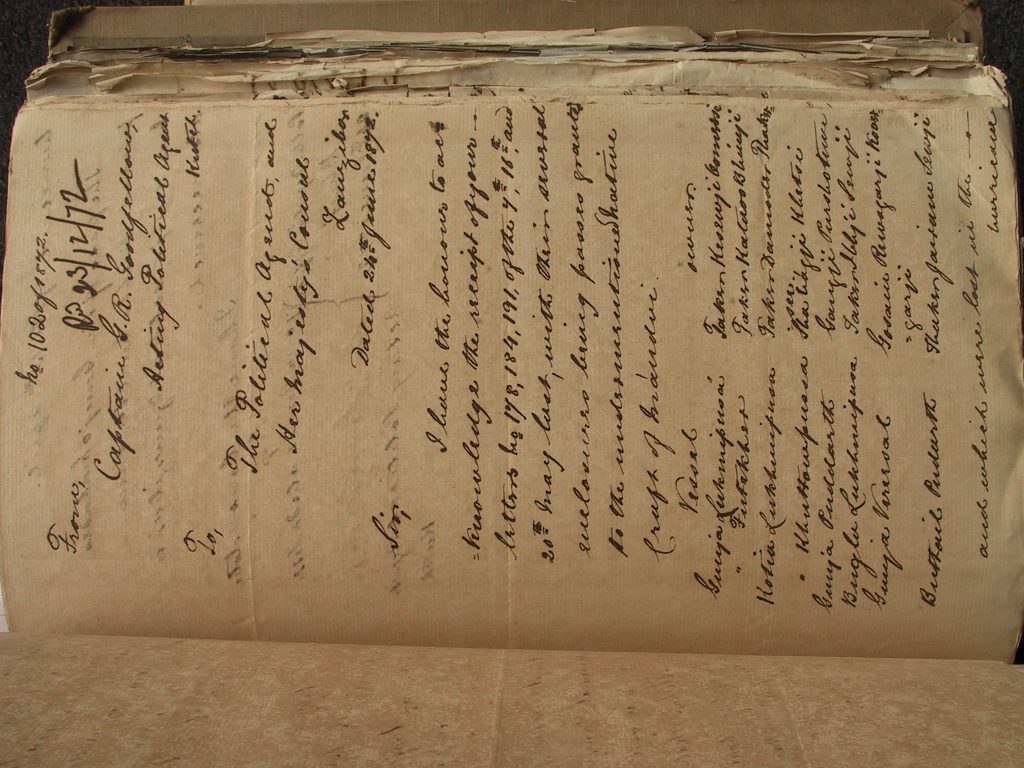 No. 102 of 1872.
From,
Captain G. R. Goodfellow,
Acting Political Agent
Kutch.
To,
The Political Agent, and
Her Majesty's Consul
Zanzibar
Dated 24th June 1872.
Sir,
I have the honour to ac
=knowledge the receipt of your
letters No 178, 184, 191, of the 4th, 16th and
20th May last, with their several
enclosures being passes granted
to the undermentioned Native
Craft of Mandvi.
Vessel owner
Gunja Lukmipusa Taker Kessowji
" Futakker Taker Kalaoo Bhimji
Kotia Lukhmipusa Taker Damoder
" Khuttowpusa Sha Ebjji Khetsi
Gunja Puddarth Gangji Purshotum
Bugla Lukhmipusa Taker Ubhji Sewji
Gunja Verersal Gosaein
" garji
Buthail Pederth Thaker Jaisane Sewji
and which were lost in the
hurricane